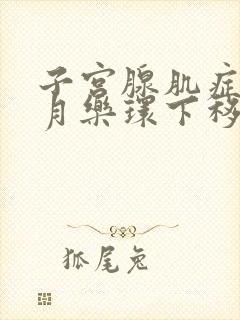 子宫腺肌症
月乐环下移
狐尾兔